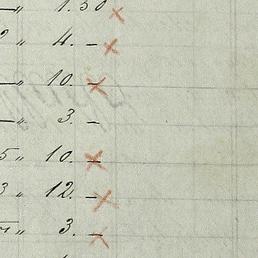 — " 1.50 ×
2 " 4. – ×
— " 10. – ×
— " 3. –
5 " 10. – ×
3 " 12. – ×
" 3. – ×